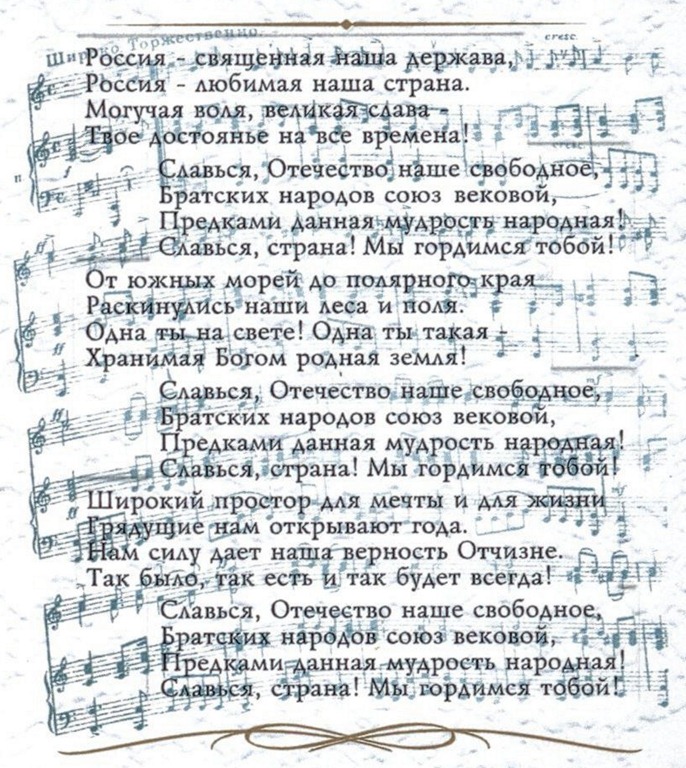 Широко Торжественно.
cresc.
Россия - священная наша держава,
Россия - любимая наша страна.
Могучая воля, великая слава -
Твое достоянье на все времена!
Славься, Отечество наше свободное,
Братских народов союз вековой,
Предками данная мудрость народная!
Славься, страна! Мы гордимся тобой!
От южных морей до полярного края
Раскинулись наши леса и поля.
Одна ты на свете! Одна ты такая -
Хранимая Богом родная земля!
Славься, Отечество наше свободное,
Братских народов союз вековой,
Предками данная мудрость народная!
Славься, страна! Мы гордимся тобой!
Широкий простор для мечты и для жизни
Грядущие нам открывают года.
Нам силу дает наша верность Отчизне.
Так было, так есть и так будет всегда!
Славься, Отечество наше свободное,
Братских народов союз вековой,
Предками данная мудрость народная!
Славься, страна! Мы гордимся тобой!